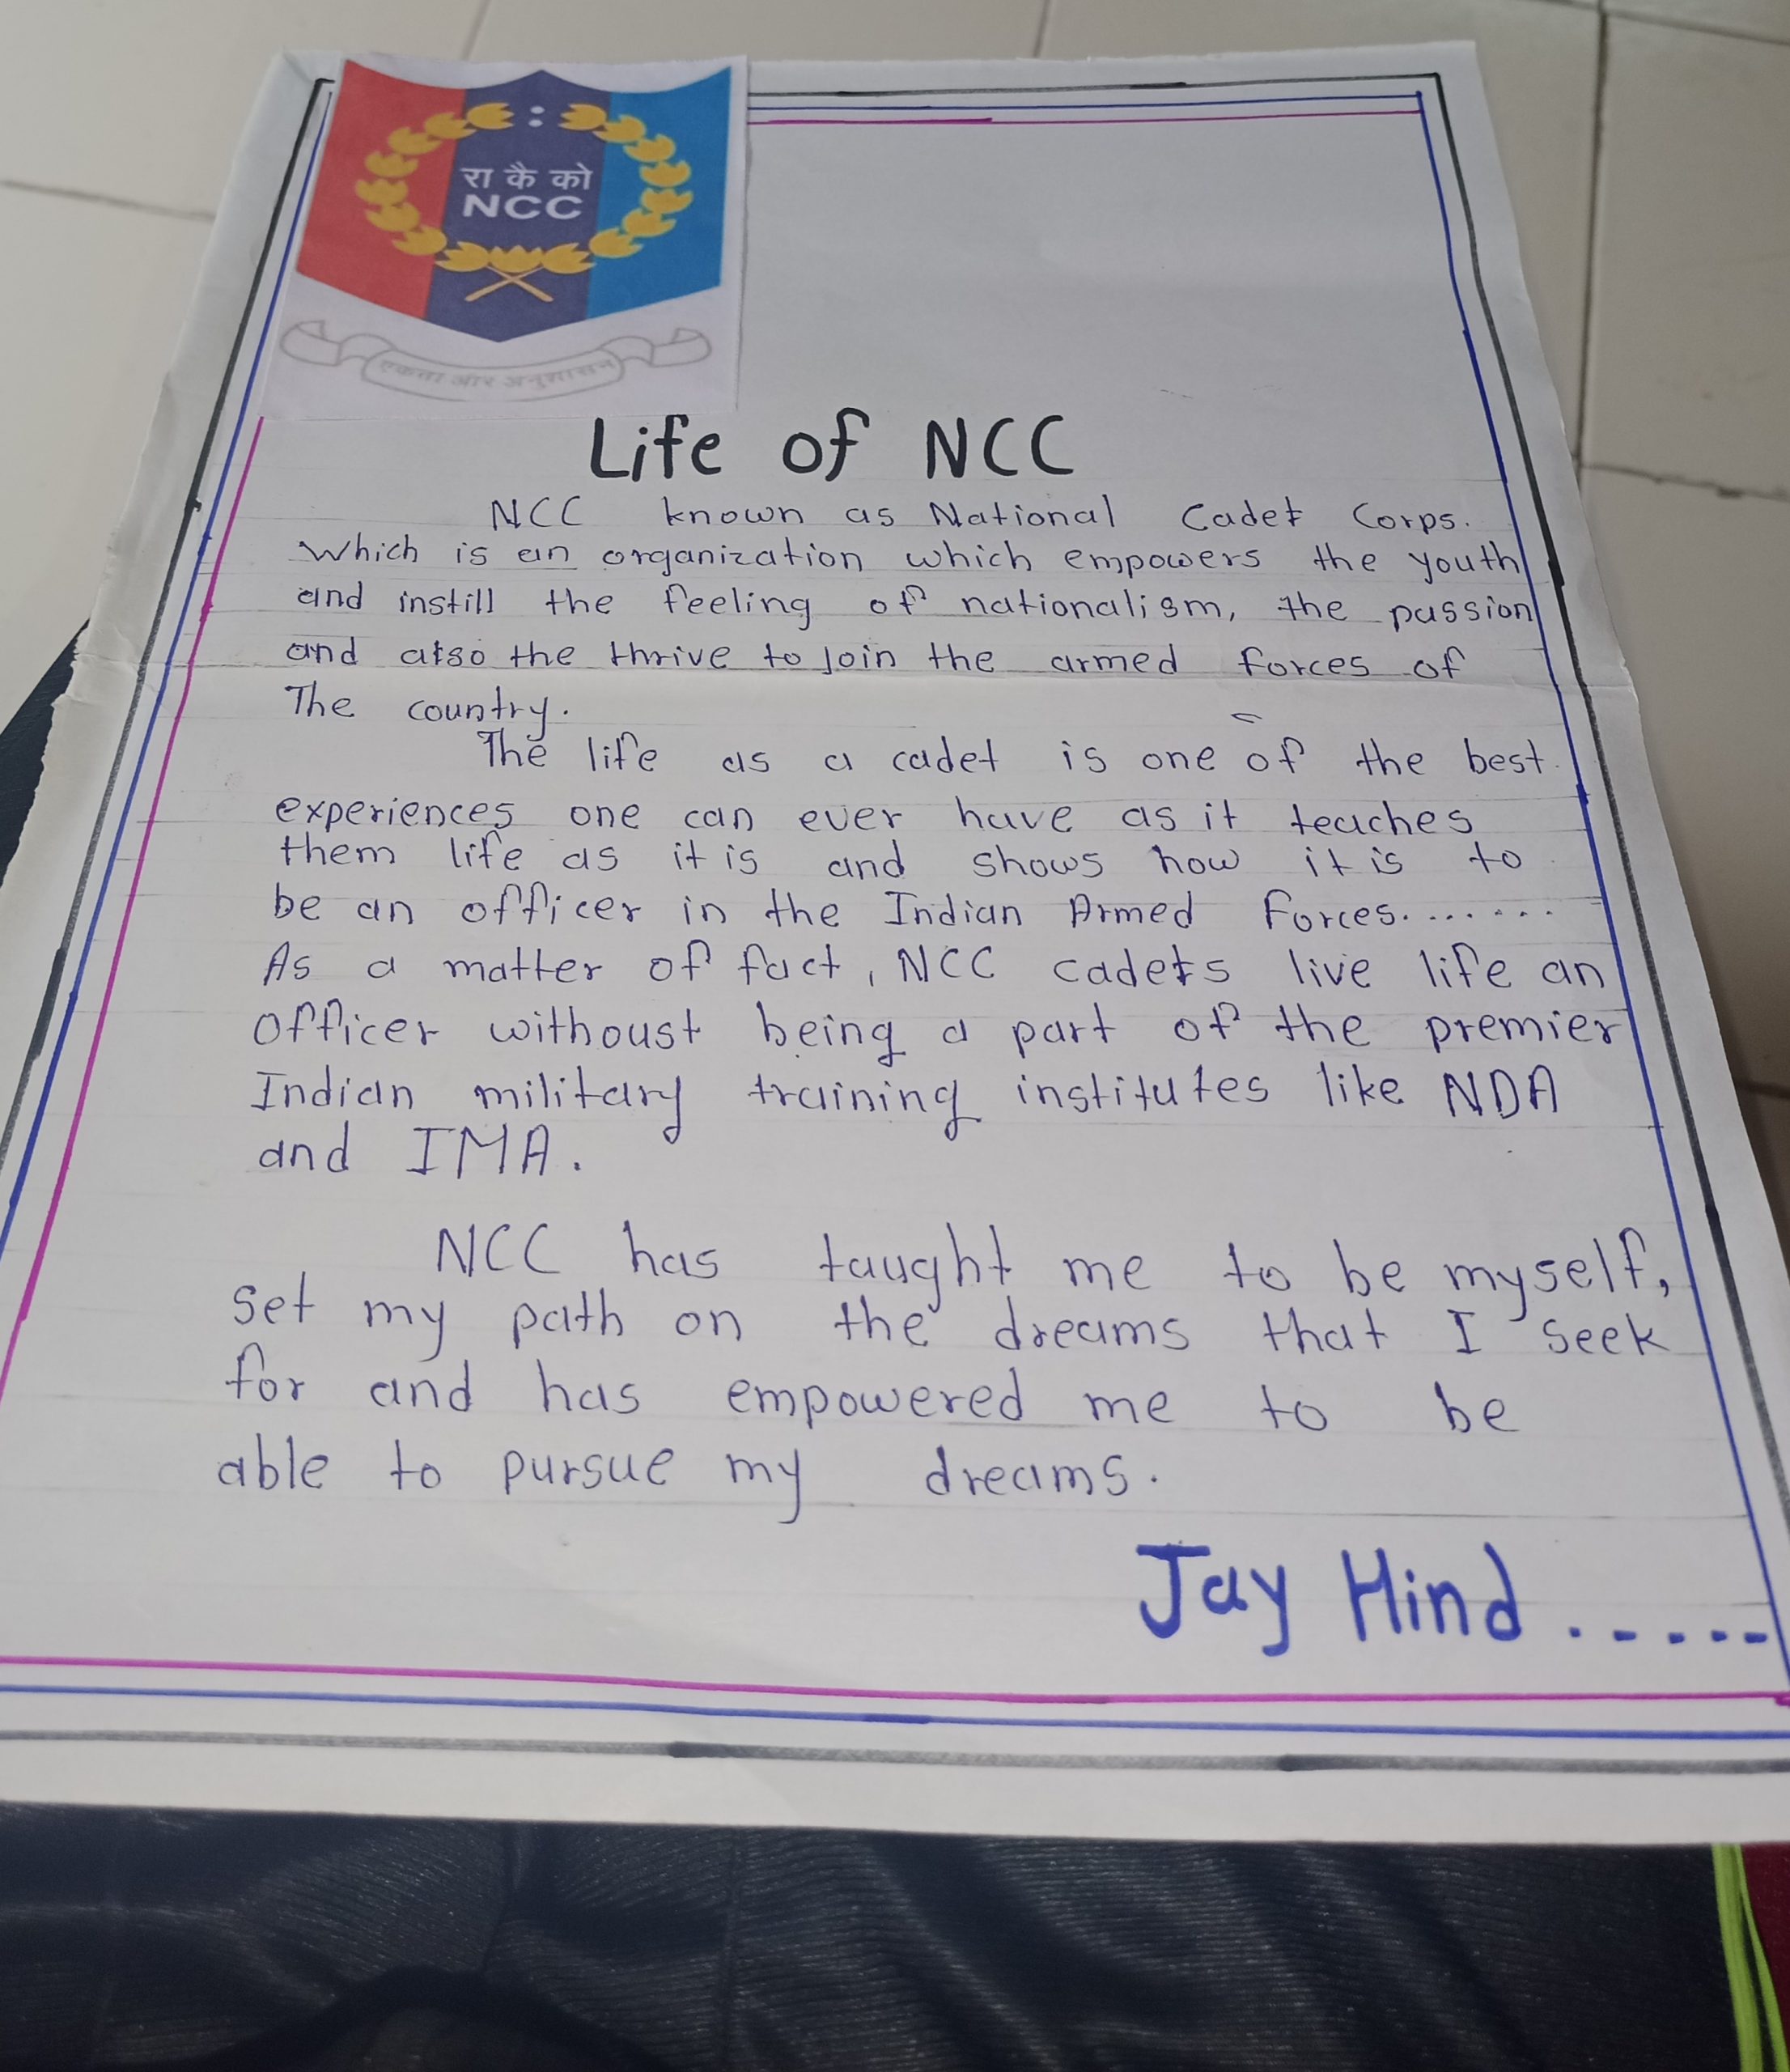 रा कै को
NCC
एकता और अनुशासन
Life of NCC
NCC known as National Cadet Corps.
Which is an organization which empowers the youth
and instill the feeling of nationalism, the passion
and also the thrive to join the armed forces of
The country.
The life as a cadet is one of the best
experiences one can ever have as it teaches
them life as it is and shows how it is to
be an officer in the Indian Armed Forces.......
As a matter of fact, NCC cadets live life an
Officer withoust being a part of the premier
Indian military training institutes like NDA
and IMA.
NCC has taught me to be myself,
set my path on the dreams that I seek
for and has empowered me to be
able to pursue my dreams.
Jay Hind .....